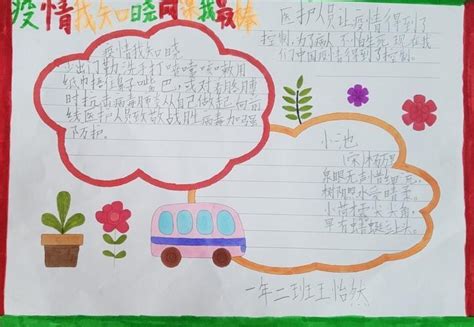 疫情我知晓网课我最棒
医护人员让疫情得到了
控制,为了病人不怕生死现在我
们中国疫情得到了控制。
疫情我知晓
少出门勤洗手打喷嚏咳嗽用
纸巾捂鼻子嘴巴,或对着胳膊
时抗击病毒肺炎从自己做起向前
线医护人员致敬战胜病毒加强
防护。
小池
(宋)杨万里
泉眼无声惜细流,
树阴照水爱晴柔。
小荷才露尖尖角,
早有蜻蜓立上头。
一年二班王怡然